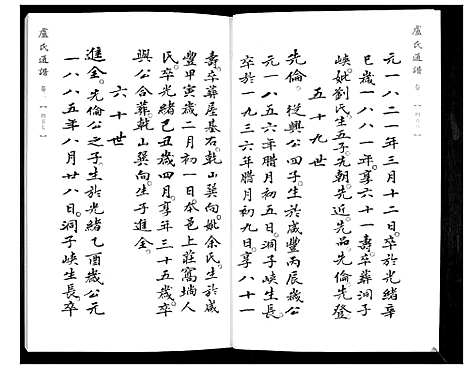 盧氏通譜
元一八二一年三月十二日。卒於光緒辛
巳歲一八八一年。享六十一壽。卒葬洞子
峽。妣劉氏生五子。先朝。先近。先品。先倫。先登
五十九世
先倫。從興公四子。生於咸豐丙辰歲公
元一八五六年腊月初五日。洞子峽生長。
卒於一九三六年腊月初九日。享八十一
壽。卒葬屋基右。乾山巽向。妣余氏生於咸
豐甲寅歲二月初一日本邑上莊寓塆人
氏。卒光緒己丑歲四月。享年三十五歲。卒
與公合葬。乾山巽向。生子進金。
六十世
進金。先倫公之子。生於光緒乙酉歲公元
一八八五年八月廿八日。洞子峽生長。卒
盧氏通譜